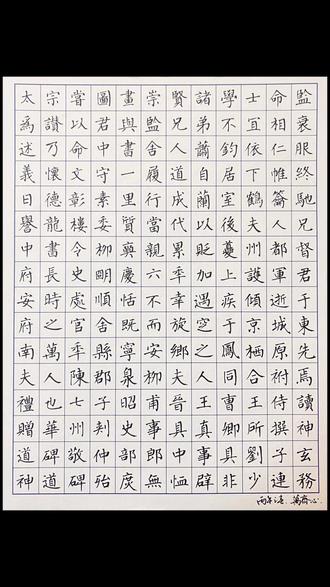 太宗嘗圖畫崇賢諸學士命監
為讚以君與監兄弟不宜相衰
述乃命中書舍人蕭鈞依仁服
義懷文守一履道自居下帷終
日德彰素里行成蘭室鶴籥馳
譽龍樓委質當代以後夫人兄
中書令柳奭親累貶蔓州都督
府長史朙慶六年加上護軍君
安時處順恬不幸遇疾傾逝于
府之官舍既而旋窆于京城東
南萬年縣寧安鄉之鳳栖原先
夫人陳郡泉柳夫人同合祔焉
禮也七子昭甫晉王曹王侍讀
贈華州刺史事具真卿所撰神
道碑敬仲部郎中事具劉子玄
神道碑殆庶無恤辟非少連務